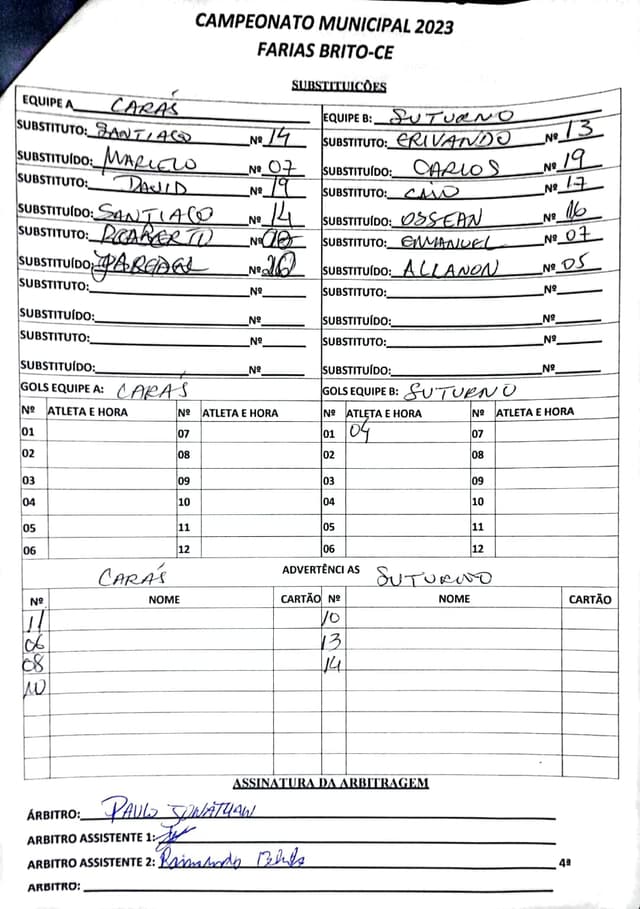 CAMPEONATO MUNICIPAL 2023
FARIAS BRITO-CE
SUBSTITUIÇÕES
EQUIPE A CARÁS
SUBSTITUTO: SANTIAGO Nº 14
SUBSTITUÍDO: MARCELO Nº 07
SUBSTITUTO: DAVID Nº 19
SUBSTITUÍDO: SANTIAGO Nº 14
SUBSTITUTO: Nº
SUBSTITUÍDO: Nº 20
SUBSTITUTO: Nº
SUBSTITUÍDO: Nº
SUBSTITUTO: Nº
SUBSTITUÍDO: Nº
EQUIPE B: SUTURNO
SUBSTITUTO: ERIVANDO Nº 13
SUBSTITUÍDO: CARLOS Nº 19
SUBSTITUTO: CAIO Nº 17
SUBSTITUÍDO: OSSEAN Nº 16
SUBSTITUTO: EMANUEL Nº 07
SUBSTITUÍDO: ALLANON Nº 05
SUBSTITUTO: Nº
SUBSTITUÍDO: Nº
SUBSTITUTO: Nº
SUBSTITUÍDO: Nº
GOLS EQUIPE A: CARÁS
Nº ATLETA E HORA Nº ATLETA E HORA
01 07
02 08
03 09
04 10
05 11
06 12
GOLS EQUIPE B: SUTURNO
Nº ATLETA E HORA Nº ATLETA E HORA
01 04 07
02 08
03 09
04 10
05 11
06 12
ADVERTÊNCI AS
CARÁS SUTURNO
Nº NOME CARTÃO Nº NOME CARTÃO
11 10
06 13
08 14
10
ASSINATURA DA ARBITRAGEM
ÁRBITRO: PAULO JONATHAN
ARBITRO ASSISTENTE 1:
ARBITRO ASSISTENTE 2: Raimundo 4ª
ARBITRO: